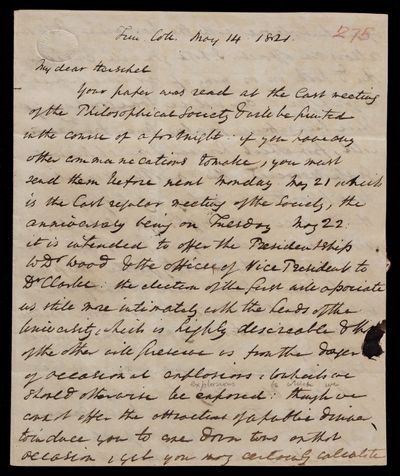 Trin. Coll. May 14 1821
275
My dear Herschel
Your paper was read at the last meeting
of the Philosophical Society & will be printed
in the course of a fortnight: if you have any
other communications to make, you must
send them before next Monday May 21 which
is the last regular meeting of the Society, the
anniversary being on Tuesday May 22.
it is intended to offer the Presidentship
to Dr Wood & the office of Vice President to
Dr Clarke: the election of the first will associate
us still more intimately with the heads of the
University, which is highly desireable & that
of the other will preserve us from the danger
of occasional explosions, to which we
explosions to which we
should otherwise be exposed: though we
cannot offer the attraction of a public dinner
to induce you to come down to us on that
occasion, yet you may certainly calculate